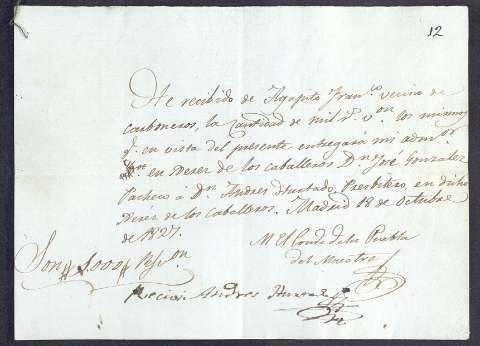 12
He recibido de Agapito Fran.co vecino de
Carboneros, la Cantidad de mil r.s v.on los mismos
q.e en vista del presente entregará mi adm.or
en Xerez de los caballeros D.n José Gonzalez
Pacheco á D.n Andres Hurtado, Presbitero, en dicho
Xerez de los Caballeros. Madrid 18 de Octubre
de 1827.
El Conde de la Puebla
del Maestre
Son 1.000 R.s v.on
Recivi Andres Hurtado